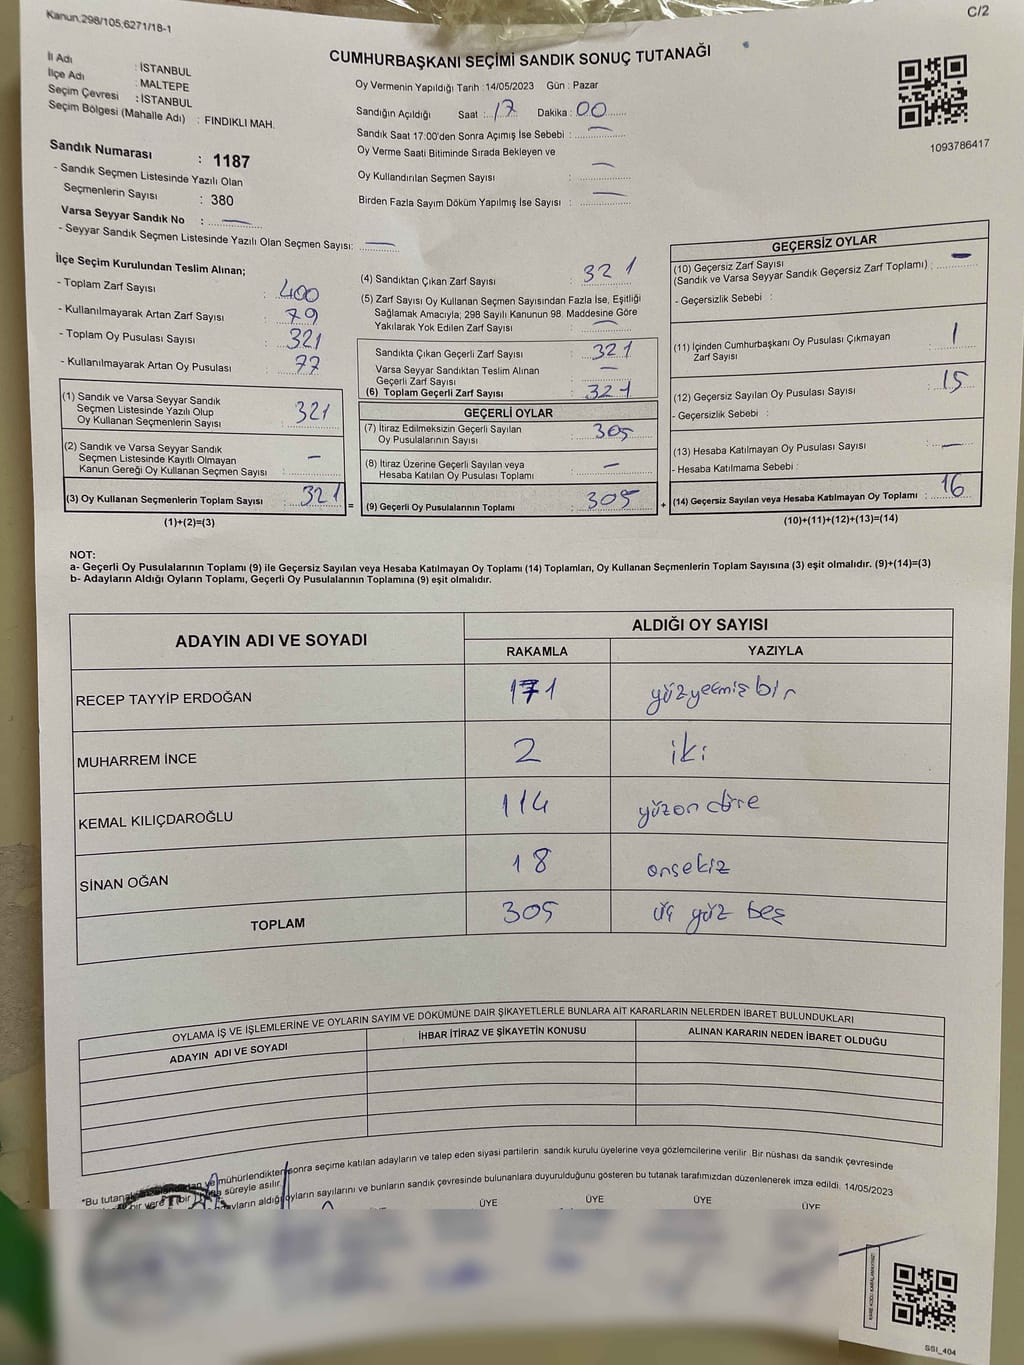 Kanun.298/105;6271/18-1
C/2
CUMHURBAŞKANI SEÇİMİ SANDIK SONUÇ TUTANAĞI
İl Adı : İSTANBUL
İlçe Adı : MALTEPE
Seçim Çevresi : İSTANBUL
Seçim Bölgesi (Mahalle Adı) : FINDIKLI MAH.
Sandık Numarası : 1187
- Sandık Seçmen Listesinde Yazılı Olan
Seçmenlerin Sayısı : 380
Varsa Seyyar Sandık No : —
- Seyyar Sandık Seçmen Listesinde Yazılı Olan Seçmen Sayısı: —
Oy Vermenin Yapıldığı Tarih :14/05/2023 Gün : Pazar
Sandığın Açıldığı Saat : 17 Dakika : 00
Sandık Saat 17:00'den Sonra Açımış İse Sebebi : —
Oy Verme Saati Bitiminde Sırada Bekleyen ve
Oy Kullandırılan Seçmen Sayısı : —
Birden Fazla Sayım Döküm Yapılmış İse Sayısı : —
1093786417
İlçe Seçim Kurulundan Teslim Alınan;
- Toplam Zarf Sayısı : 400
- Kullanılmayarak Artan Zarf Sayısı : 79
- Toplam Oy Pusulası Sayısı : 321
- Kullanılmayarak Artan Oy Pusulası : 77
(1) Sandık ve Varsa Seyyar Sandık
Seçmen Listesinde Yazılı Olup
Oy Kullanan Seçmenlerin Sayısı : 321
(2) Sandık ve Varsa Seyyar Sandık
Seçmen Listesinde Kayıtlı Olmayan
Kanun Gereği Oy Kullanan Seçmen Sayısı : —
(3) Oy Kullanan Seçmenlerin Toplam Sayısı : 321
(1)+(2)=(3)
=
(4) Sandıktan Çıkan Zarf Sayısı : 321
(5) Zarf Sayısı Oy Kullanan Seçmen Sayısından Fazla İse, Eşitliği
Sağlamak Amacıyla; 298 Sayılı Kanunun 98. Maddesine Göre
Yakılarak Yok Edilen Zarf Sayısı : —
Sandıkta Çıkan Geçerli Zarf Sayısı : 321
Varsa Seyyar Sandıktan Teslim Alınan
Geçerli Zarf Sayısı : —
(6) Toplam Geçerli Zarf Sayısı : 321
GEÇERLİ OYLAR
(7) İtiraz Edilmeksizin Geçerli Sayılan
Oy Pusulalarının Sayısı : 305
(8) İtiraz Üzerine Geçerli Sayılan veya
Hesaba Katılan Oy Pusulası Toplamı : —
(9) Geçerli Oy Pusulalarının Toplamı : 305
+
GEÇERSİZ OYLAR
(10) Geçersiz Zarf Sayısı
(Sandık ve Varsa Seyyar Sandık Geçersiz Zarf Toplamı) : —
- Geçersizlik Sebebi :
(11) İçinden Cumhurbaşkanı Oy Pusulası Çıkmayan
Zarf Sayısı : 1
(12) Geçersiz Sayılan Oy Pusulası Sayısı : 15
- Geçersizlik Sebebi :
(13) Hesaba Katılmayan Oy Pusulası Sayısı : —
- Hesaba Katılmama Sebebi :
(14) Geçersiz Sayılan veya Hesaba Katılmayan Oy Toplamı : 16
(10)+(11)+(12)+(13)=(14)
NOT:
a- Geçerli Oy Pusulalarının Toplamı (9) ile Geçersiz Sayılan veya Hesaba Katılmayan Oy Toplamı (14) Toplamları, Oy Kullanan Seçmenlerin Toplam Sayısına (3) eşit olmalıdır. (9)+(14)=(3)
b- Adayların Aldığı Oyların Toplamı, Geçerli Oy Pusulalarının Toplamına (9) eşit olmalıdır.
ADAYIN ADI VE SOYADI ALDIĞI OY SAYISI
RAKAMLA YAZIYLA
RECEP TAYYİP ERDOĞAN 171 yüzyetmişbir
MUHARREM İNCE 2 iki
KEMAL KILIÇDAROĞLU 114 yüzondört
SİNAN OĞAN 18 onsekiz
TOPLAM 305 üç yüz beş
OYLAMA İŞ VE İŞLEMLERİNE VE OYLARIN SAYIM VE DÖKÜMÜNE DAİR ŞİKAYETLERLE BUNLARA AİT KARARLARIN NELERDEN İBARET BULUNDUKLARI
ADAYIN ADI VE SOYADI İHBAR İTİRAZ VE ŞİKAYETİN KONUSU ALINAN KARARIN NEDEN İBARET OLDUĞU
*Bu tutanak mühürlendikten sonra seçime katılan adayların ve talep eden siyasi partilerin sandık kurulu üyelerine veya gözlemcilerine verilir. Bir nüshası da sandık çevresinde
süreyle asılır.
aldığı oyların sayılarını ve bunların sandık çevresinde bulunanlara duyurulduğunu gösteren bu tutanak tarafımızdan düzenlenerek imza edildi. 14/05/2023
ÜYE ÜYE ÜYE ÜYE
SSI_404